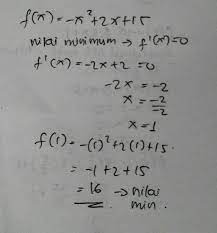 f(x) = -x² + 2x + 15
nilai minimum → f'(x) = 0
f'(x) = -2x + 2 = 0
-2x = -2
x = -2/-2
x = 1
f(1) = -(1)² + 2(1) + 15.
= -1 + 2 + 15
= 16 → nilai
min.